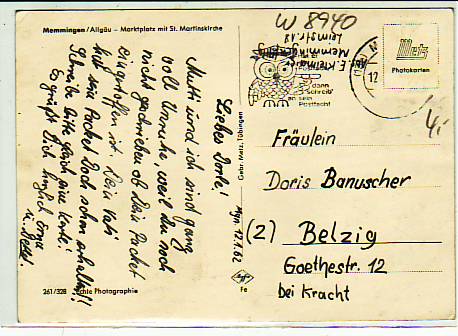 Memmingen/Allgäu – Marktplatz mit St. Martinskirche
W 8940
E. Kleimaier
Memmingen
dann
schreib'
an sein
Postfach!
12
Metz
Photokarten
4,-
Mgn. 12.1.62
Liebes Dorle!
Mutti und ich sind ganz
voll Unruhe weil Du noch
nicht geschrieben ob Dein Packet
eingetroffen ist. Dein Vati
hat sein Packet doch schon erhalten!!
Schreibe bitte gleich eine Karte!
Es grüßt Dich herzlich
Gebr. Metz, Tübingen
Fräulein
Doris Banuscher
(2) Belzig
Goethestr. 12
bei Kracht
261/328 Echte Photographie
Agfa
Fe